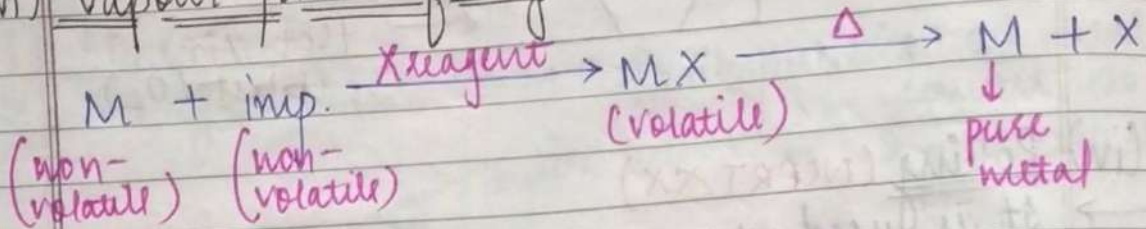 M + imp. X reagent → MX Δ → M + X
(non-volatile) (non-volatile) (volatile) ↓
pure
metal